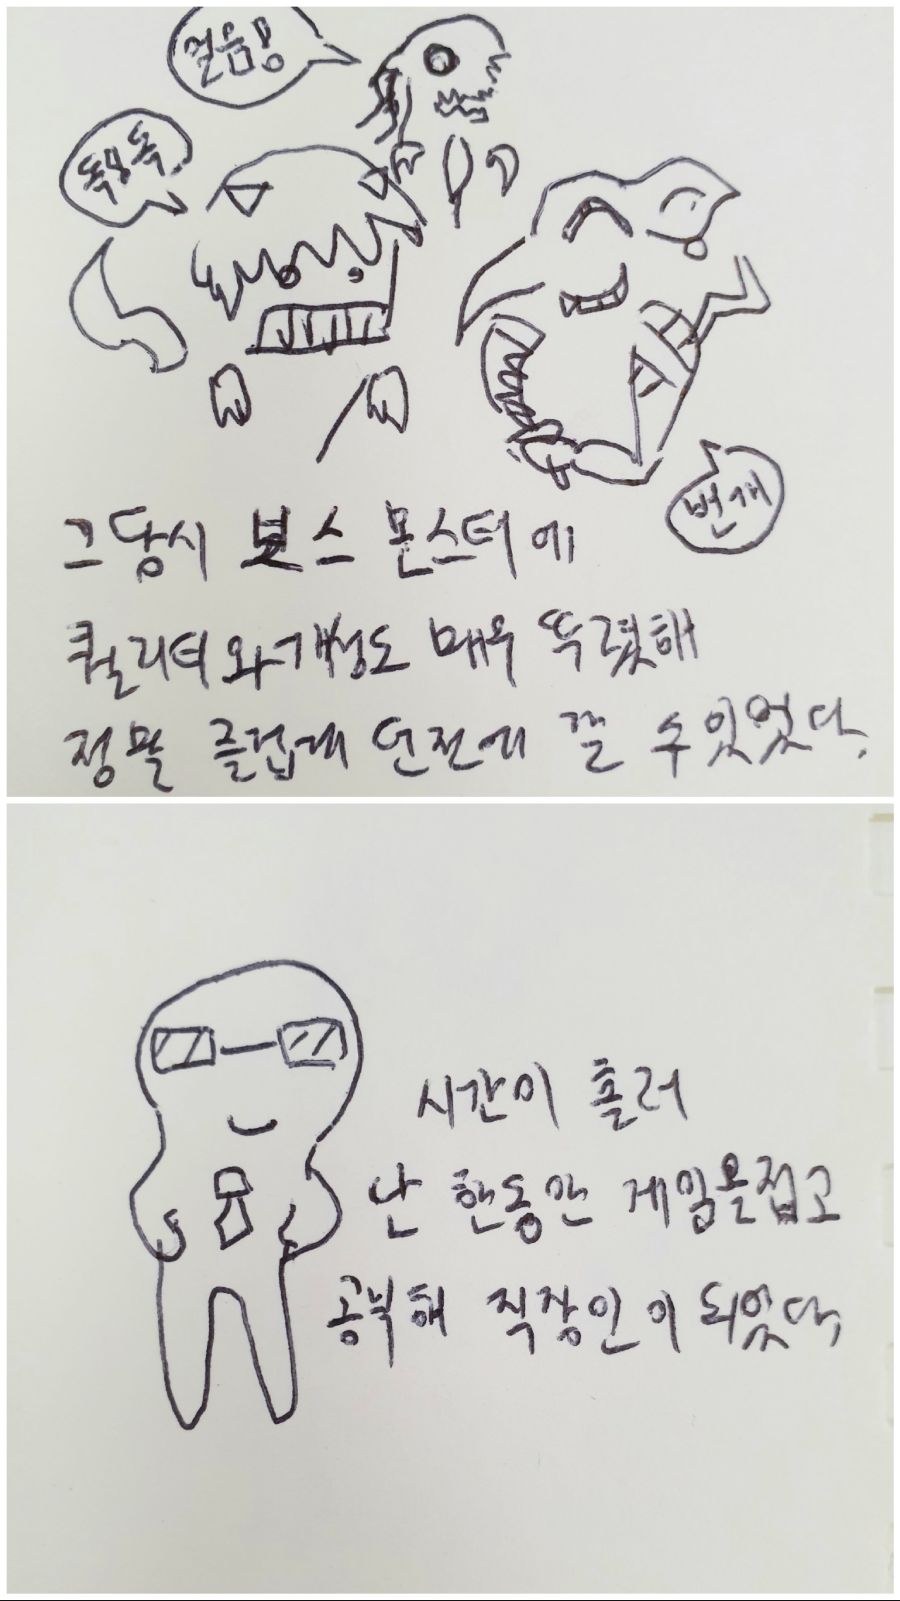 걸음!
독!독
번개
그 당시 보스 몬스터에
퀄리티와 개성도 매우 뚜렷해
정말 즐겁게 던전에 깰 수 있었다.
시간이 흘러
난 한동안 게임을 접고
공부해 직장인이 되었다,